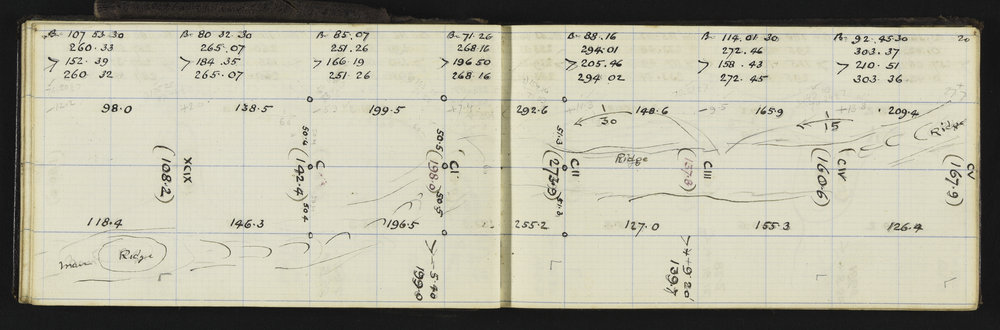 B- 107 53.30 B- 80 32.30 B- 85.07 B- 71.26 B- 88.16 B- 114.01.30 B- 92.45 30 20
260.33 265.07 251.26 268.16 294.01 272.46 303.37
> 152.39 > 184.35 > 166 19 > 196 50 > 205.46 > 158.43 > 210.51
260 32 265.07 251 26 268.16 294 02 272.45 303 36
98.0 138.5 199.5 292.6 148.6 165.9 209.4
1
30
-
15
Ridge
Ridge
50.4 50.5 51.3
XCIX C CI CII CIII CIV CV
(108.2) (142.4) (198.0) (273.9) (137.8) (160.6) (167.9)
50.4 50.5 51.3
118.4 146.3 196.5 255.2 127.0 155.3 126.4
main Ridge
> - 5 40
199.0
> + 9 20
139.7